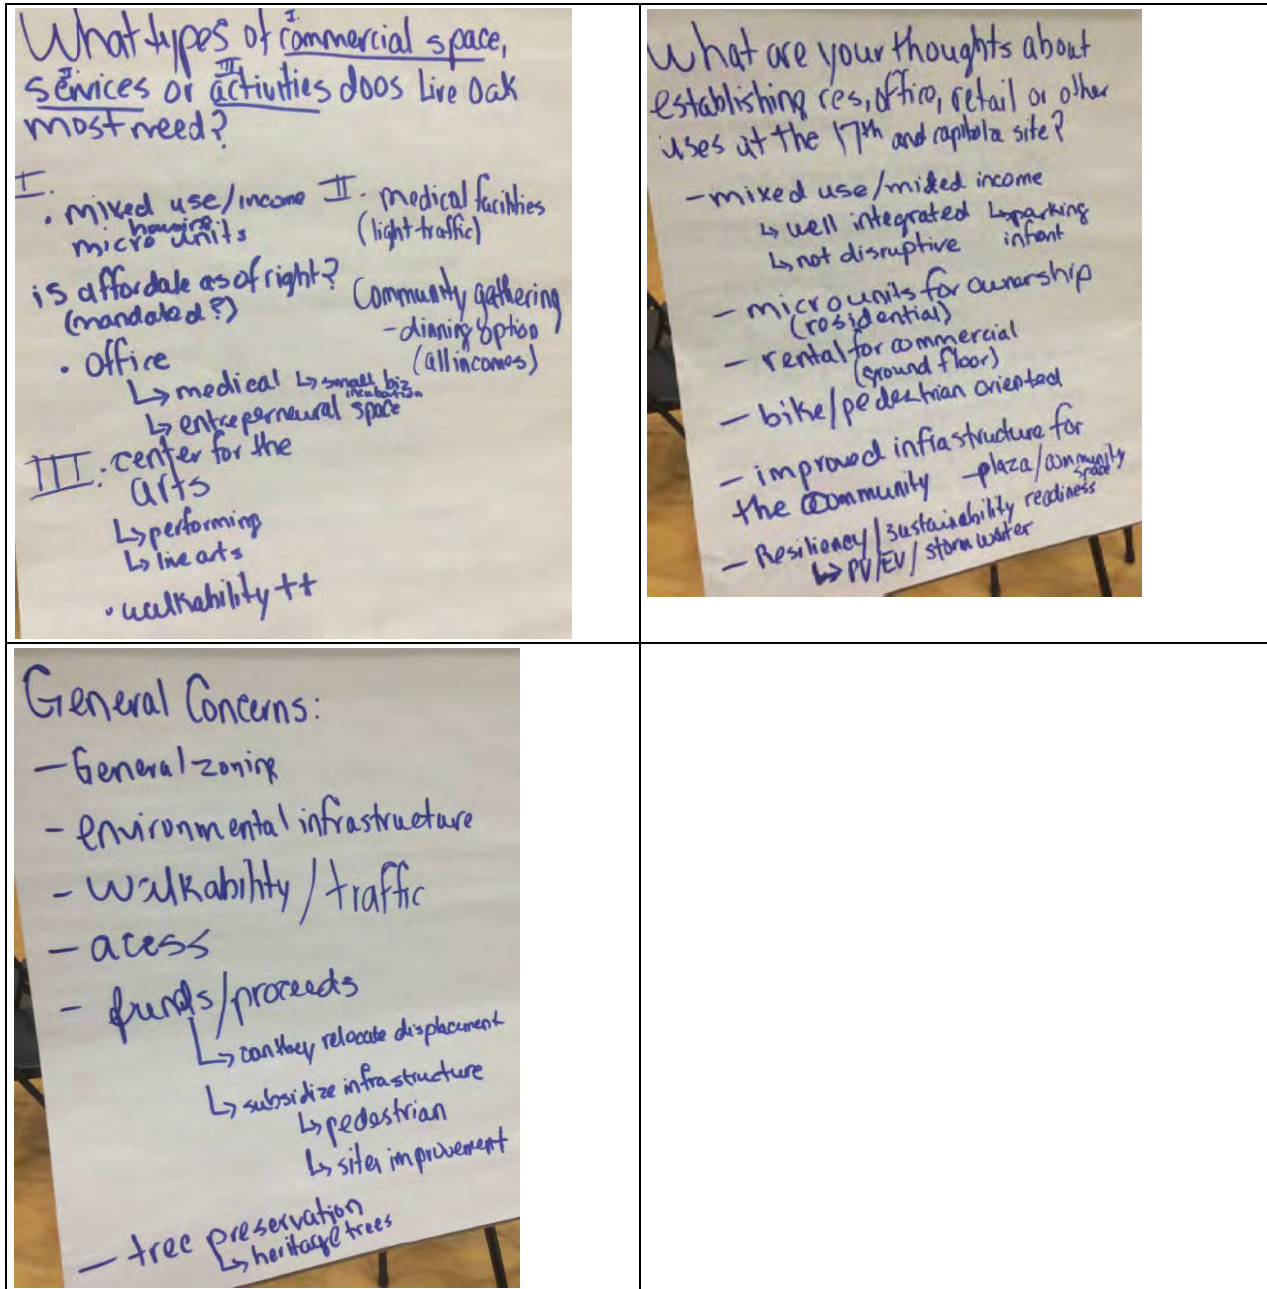 What types of commercial space,
I.
services or activities doos Live Oak
II III
most need?
I.
• mixed use/income
housing
micro units
is affordale as of right?
(mandated?)
• Office
↳ medical ↳ small biz
incubation
↳ entreperneurial space
II - medical facilities
(light traffic)
Community gathering
- dinning option
(all incomes)
III. center for the
arts
↳ performing
↳ live arts
• walkability ++
What are your thoughts about
establishing res, office, retail or other
uses at the 17th and capitola site?
- mixed use/mixed income
↳ well integrated ↳ parking
↳ not disruptive in front
- micro units for ownership
(residential)
- rental for commercial
(ground floor)
- bike/pedestrian oriented
- improved infrastructure for
the community - plaza/community
space
- Resiliency/sustainability readiness
↳ PV/EV/storm water
General Concerns:
- General zoning
- environmental infrastructure
- walkability/traffic
- acess
- funds/proceeds
↳ can they relocate displacment
↳ subsidize infrastructure
↳ pedestrian
↳ site improvement
- tree preservation
↳ heritage trees